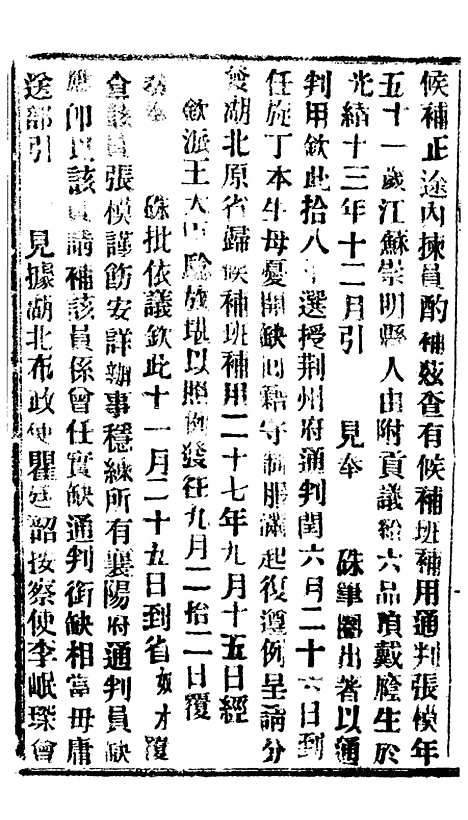 候補正途內揀員酌補茲查有候補班補用通判張模年
五十一歲江蘇崇明縣人由附貢議給六品頂戴廕生於
光緒十三年十二月引 見奉 硃筆圈出著以通
判用欽此拾八年選授荆州府通判閏六月二十六日到
任旋丁本生母憂開缺回籍守制服滿起復遵例呈請分
發湖北原省歸候補班補用二十七年九月十五日經
欽派王大臣驗放堪以照例發往九月二拾二日覆
奏奉 硃批依議欽此十一月二十五日到省奴才覆
查該員張模謹飭安詳辦事穩練所有襄陽府通判員缺
應卽以該員請補該員係曾任實缺通判銜缺相當毋庸
送部引 見據湖北布政使瞿廷韶按察使李岷琛會